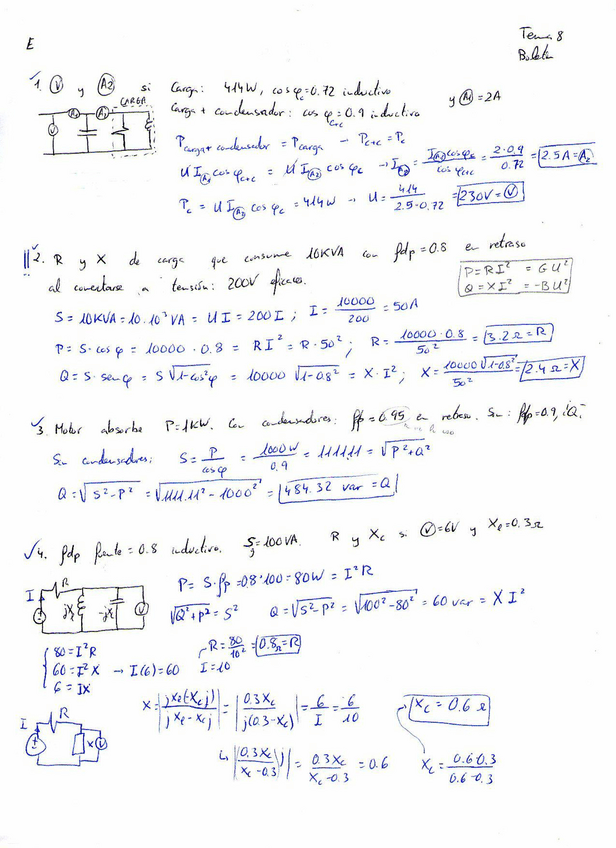 E
Tema 8
Boletín
1. Ⓥ y (A2) si Carga: 414W, cos φc = 0.72 inductivo
Carga + condensador: cos φc+c = 0.9 inductivo y (A1) = 2A
CARGA
V A1
P carga + condensador = P carga → Pc+c = Pc
U I(A1) cos φc+c = U I(A2) cos φc → I(A2) = I(A1) cos φc / cos φc = 2·0.9 / 0.72 = 2.5A = A2
Pc = U I(A2) cos φc = 414W → U = 414 / 2.5·0.72 = 230V = Ⓥ
2. R y X de carga que consume 10KVA con fdp = 0.8 en retraso
al conectarse a tensión: 200V eficaces.
P = RI² = GU²
Q = XI² = -BU²
S = 10KVA = 10·10³VA = UI = 200I ; I = 10000 / 200 = 50A
P = S·cos φ = 10000·0.8 = RI² = R·50² ; R = 10000·0.8 / 50² = 3.2Ω = R
Q = S·sen φ = S√1-cos²φ = 10000 √1-0.8² = X·I² ; X = 10000√1-0.8² / 50² = 2.4Ω = X
3. Motor absorbe P=1KW. Con condensadores: fp = 0.95 en retraso. Sin: fp=0.9, ¿Q?
Sin condensadores: S = P / cos φ = 1000W / 0.9 = 1111.11 = √P²+Q²
Q = √S²-P² = √1111.11²-1000² = 484.32 var = Q
4. fdp fuente = 0.8 inductivo. S = 100VA. R y Xc si Ⓥ=6V y Xl=0.3Ω
I R V
P = S·fp = 0.8·100 = 80W = I²R
√Q²+P² = S² Q = √S²-P² = √100²-80² = 60 var = XI²
80 = I²R
60 = I²X → I(6) = 60 I = 10
6 = IX
R = 80 / 10² = 0.8Ω = R
X = |jXl(-Xcj) / jXl - Xcj| = |0.3Xc / j(0.3-Xc)| = 6 / I = 6 / 10
Xc = 0.6 Ω
I R X V
|0.3Xc / Xc-0.3 j| = 0.3Xc / Xc-0.3 = 0.6
Xc = 0.6·0.3 / 0.6-0.3